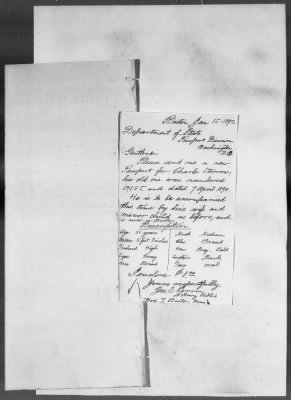 Boston Jan 15 - 1892
Department of State
Passport Bureau
Washington
D.C.
Gentlemen
Please send me a new
Passport for Charles
his old one was numbered
and dated 7 April 1890.
He is to be accompanied
this time by his wife and
minor as before, and
is now in Boston
Description
Age years Mouth Medium
Stature 5 feet inches Chin Broad
Forehead High Hair
Eyes Complexion
Nose Broad Face oval
I enclose $1.00
Yours respectfully
Geo. E.
Notary Public
Box 7, Boston Mass